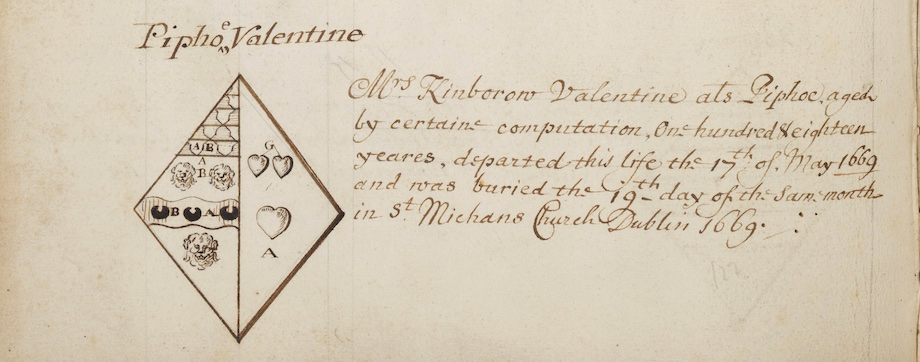 Piphoe Valentine
Mrs Kinborow Valentine als Piphoe, aged
by certaine computation, One hundred & eighteen
yeares, departed this life the 17th of May 1669
and was buried the 19th day of the same month
in St Michans Church Dublin 1669.
A B
A
B
G
B A
A